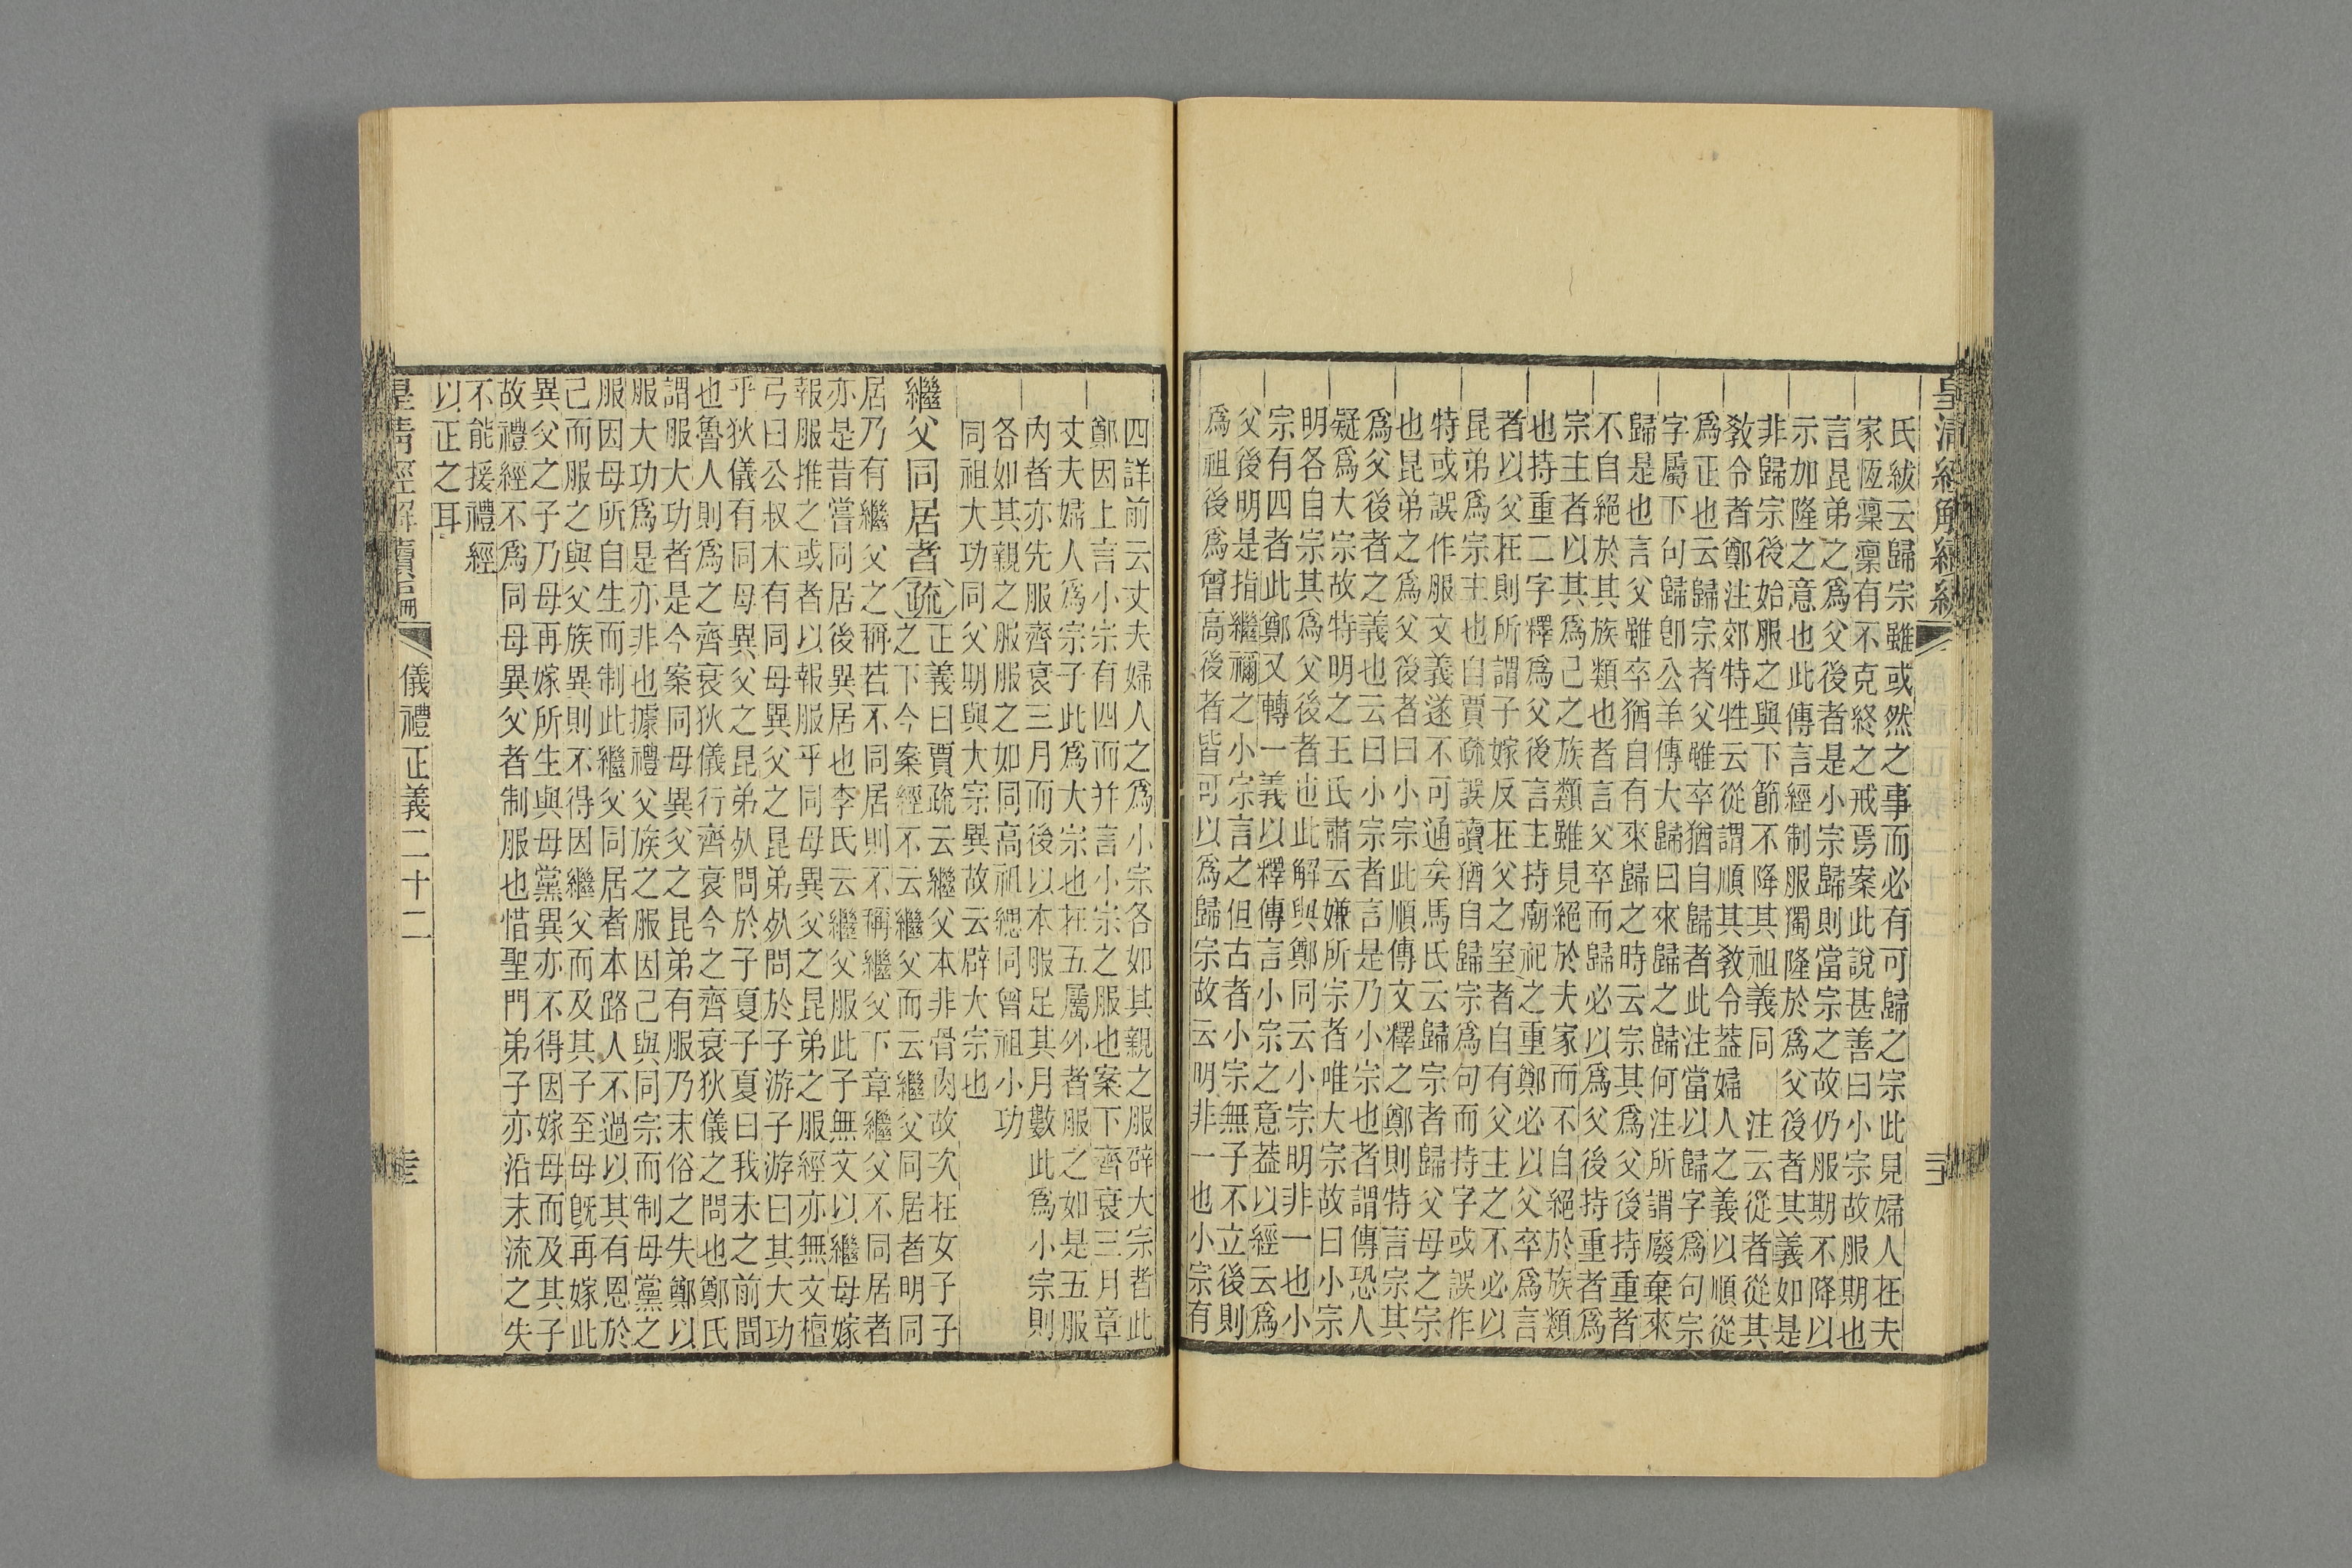 氏紱云歸宗雖或然之事而必有可歸之宗此見婦人在夫
家恆稟稟有不克終之戒焉案此說甚善曰小宗故服期也
言昆弟之爲父後者是小宗歸則當宗之故仍服期不降以
示加隆之意也此傳言經制服獨隆於爲父後者其義如是
非歸宗後始服之與下節不降其祖義同　注云從者從其
敎令者鄭注郊特牲云從謂順其敎令蓋婦人之義以順從
爲正也云歸宗者父雖卒猶自歸者此注當以歸字爲句宗
字屬下句歸卽公羊傳大歸曰來歸之歸何注所謂廢棄來
歸是也言父雖卒猶自有來歸之時云宗其爲父後持重者
不自絕於其族類也者言父卒而歸必以爲父後持重者爲
宗主者以其爲己之族類雖見絕於夫家而不自絕於族類
也持重二字釋爲父後言主持廟祀之重鄭必以父卒爲言
者以父在則所謂子嫁反在父之室者自有父主之不必以
昆弟爲宗主也自賈疏誤讀猶自歸宗爲句而持字或誤作
特或誤作服文義遂不可通矣馬氏云歸宗者歸父母之宗
也昆弟之爲父後者曰小宗此順傳文釋之鄭則特言宗其
爲父後者之義也云曰小宗者言是乃小宗也者謂傳恐人
疑爲大宗故特明之王氏肅云嫌所宗者唯大宗故曰小宗
明各自宗其爲父後者也此解與鄭同云小宗明非一也小
宗有四者此鄭又轉一義以釋傳言小宗之意蓋以經云爲
父後明是指繼禰之小宗言之但古者小宗無子不立後則
爲祖後爲曾高後者皆可以爲歸宗故云明非一也小宗有
四詳前云丈夫婦人之爲小宗各如其親之服辟大宗者此
鄭因上言小宗有四而幷言小宗之服也案下齊衰三月章
丈夫婦人爲宗子此爲大宗也在五屬外者服之如是五服
內者亦先服齊衰三月而後以本服足其月數此爲小宗則
各如其親之服服之如同高祖緦同曾祖小功
同祖大功同父期與大宗異故云辟大宗也
繼父同居者疏正義曰賈疏云繼父本非骨肉故次在女子子
之下今案經不云繼父而云繼父同居者明同
居乃有繼父之稱若不同居則不稱繼父下章繼父不同居者
亦是昔嘗同居後異居也李氏云繼父服此子無文以繼母嫁
報服推之或者以報服乎同母異父之昆弟之服經亦無文檀
弓曰公叔木有同母異父之昆弟𣦸問於子游子游曰其大功
乎狄儀有同母異父之昆弟𣦸問於子夏子夏曰我未之前聞
也魯人則爲之齊衰狄儀行齊衰今之齊衰狄儀之問也鄭氏
謂服大功者是今案同母異父之昆弟有服乃末俗之失鄭以
服大功爲是亦非也據禮父族之服因己與同宗而制母黨之
服因母所自生而制此繼父同居者本路人不過以其有恩於
己而服之與父族異則不得因繼父而及其子至母旣再嫁此
異父之子乃母再嫁所生與母黨異亦不得因嫁母而及其子
故禮經不爲同母異父者制服也惜聖門弟子亦沿末流之失
不能援禮經
以正之耳
儀禮正義二十二